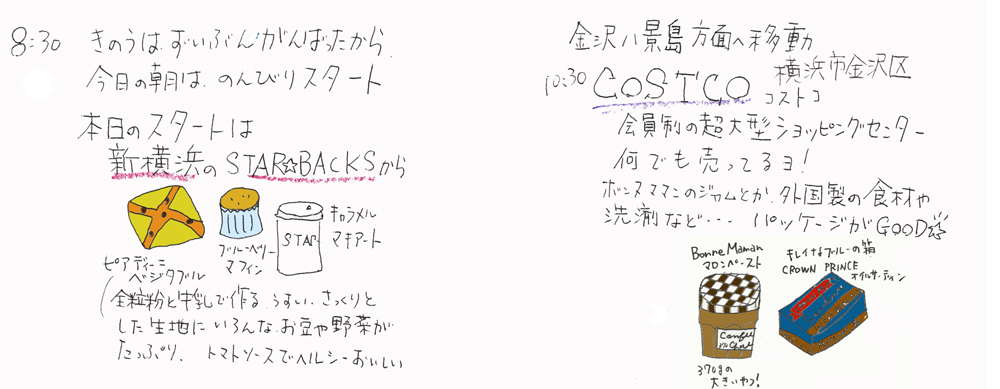 8:30 きのうは、ずいぶんがんばったから
今日の朝は、のんびりスタート
本日のスタートは
新横浜のSTAR☆BACKSから
ピアディーニ
ベジタブル
ブルーベリー
マフィン
STAR
キャラメル
マキアート
全粒粉と牛乳で作る、うすい、さっくりと
した生地にいろんなお豆や野菜が
たっぷり、トマトソースでヘルシーおいしい
金沢八景島方面へ移動
10:30 COSTCO 横浜市金沢区
コストコ
会員制の超大型ショッピングセンター
何でも売ってるヨ!
ボンヌママンのジャムとか、外国製の食材や
洗剤など… パッケージがGOOD☆
Bonne Maman
マロンペースト
370gの
大きいやつ!
キレイなブルーの箱
CROWN PRINCE
オイルサーディン